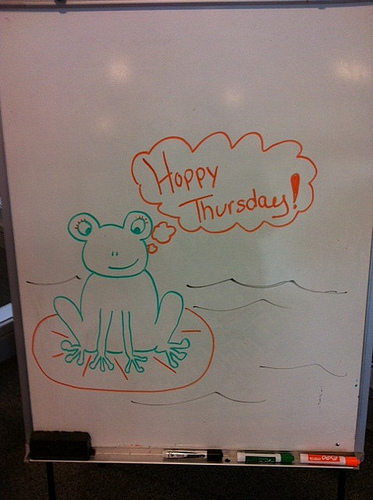 Hoppy
Thursday!